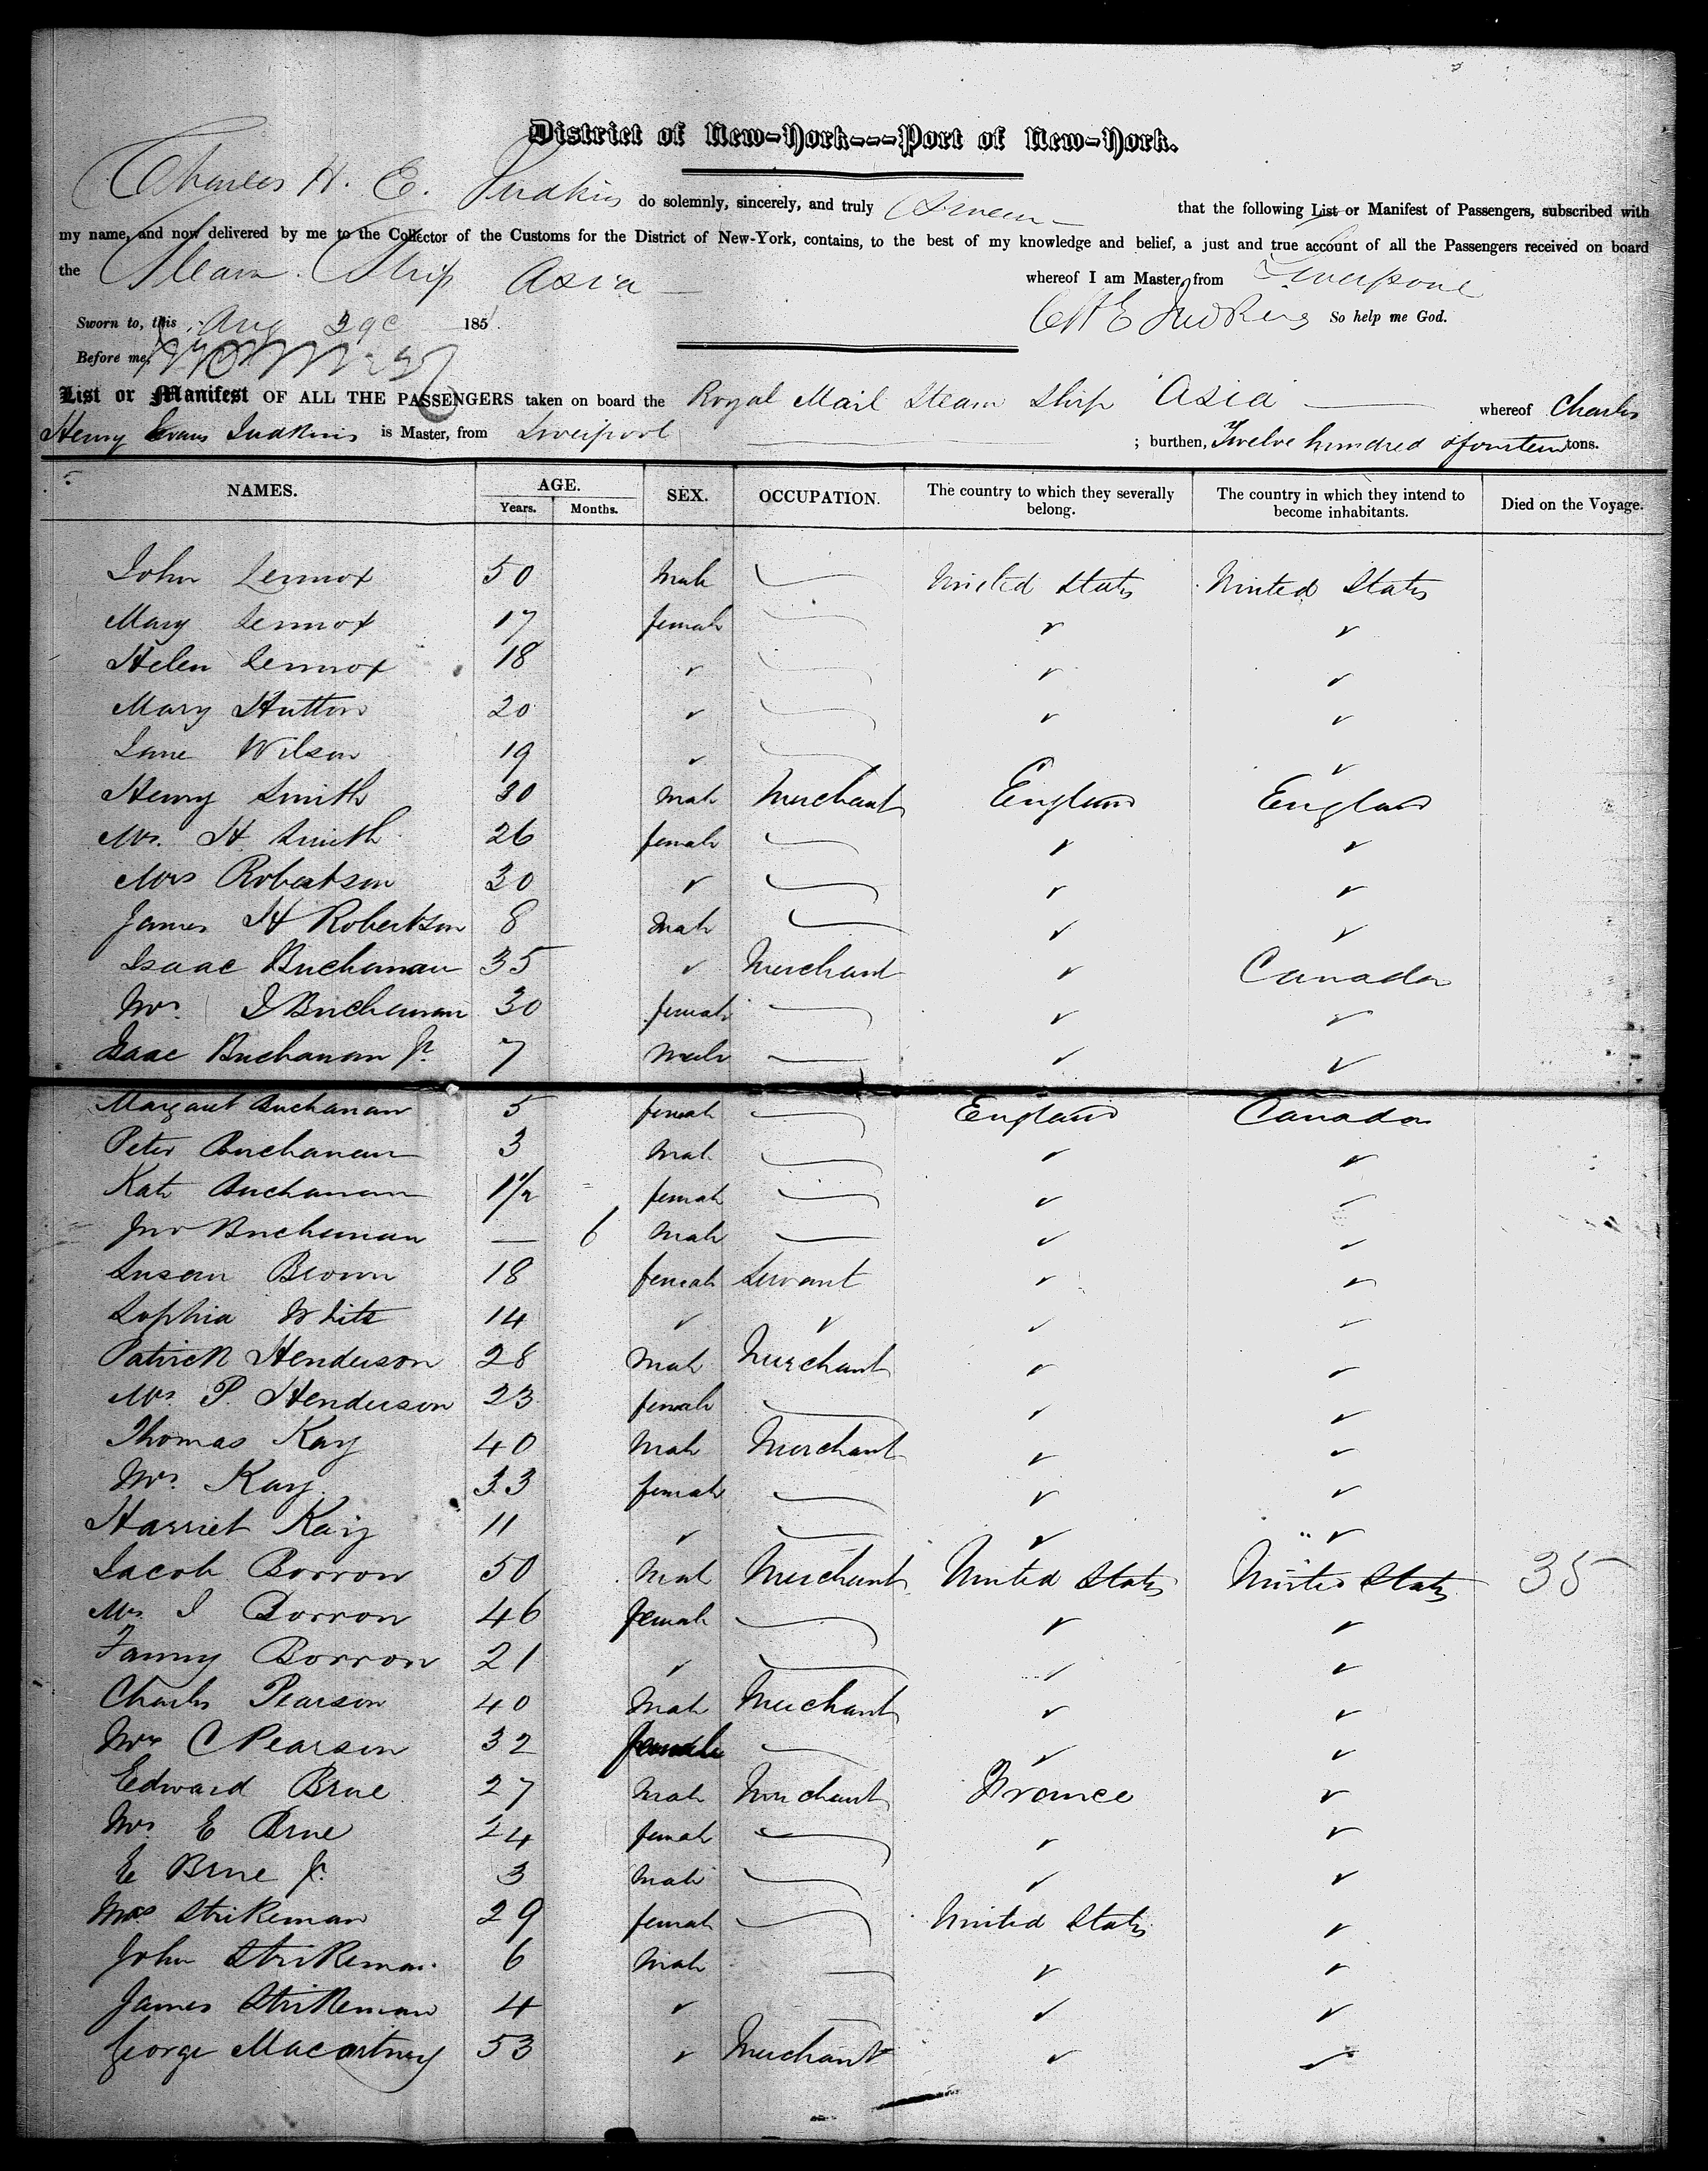 District of New-York---Port of New-York.
Charles H. E. Judkins do solemnly, sincerely, and truly Swear that the following List or Manifest of Passengers, subscribed with
my name, and now delivered by me to the Collector of the Customs for the District of New-York, contains, to the best of my knowledge and belief, a just and true account of all the Passengers received on board
the Steam Ship Asia whereof I am Master, from Liverpool
Sworn to, this Aug 185 CHE Judkins So help me God.
Before me,
List or Manifest OF ALL THE PASSENGERS taken on board the Royal Mail Steam Ship Asia — whereof Charles
Henry Evans Judkins is Master, from Liverpool ; burthen, Twelve hundred & fourteen tons.
NAMES. AGE. SEX. OCCUPATION. The country to which they severally belong. The country in which they intend to become inhabitants. Died on the Voyage.
Years. Months.
John Lennox 50 Male — United States United States
Mary Lennox 17 female — ✓ ✓
Helen Lennox 18 ✓ — ✓ ✓
Mary Hutton 20 ✓ — ✓ ✓
Jane Wilson 19 ✓ — ✓
Henry Smith 30 Male Merchant England England
Mrs. H. Smith 26 female — ✓ ✓
Mrs Robertson 30 ✓ — ✓ ✓
James H Robertson 8 Male — ✓ ✓
Isaac Buchanan 35 ✓ Merchant ✓ Canada
Mrs. I Buchanan 30 female — ✓ ✓
Isaac Buchanan Jr. 7 Male — ✓ ✓
Margaret Buchanan 5 female — England Canada
Peter Buchanan 3 Male — ✓ ✓
Kate Buchanan 1 1/2 female — ✓ ✓
Jno Buchanan — 6 Male — ✓ ✓
Susan Brown 18 female Servant ✓ ✓
Sophia White 14 ✓ ✓ ✓ ✓
Patrick Henderson 28 Male Merchant ✓ ✓
Mrs. P. Henderson 23 female — ✓ ✓
Thomas Kay 40 Male Merchant ✓ ✓
Mrs. Kay 33 female — ✓ ✓
Harriet Kay 11 ✓ — ✓ ✓
Jacob Borron 50 Male Merchant United States United States 35
Mrs J Borron 46 female — ✓ ✓
Fanny Borron 21 ✓ — ✓ ✓
Charles Pearson 40 Male Merchant ✓ ✓
Mrs C Pearson 32 female — ✓ ✓
Edward Brue 27 Male Merchant France ✓
Mrs E Brue 24 female — ✓ ✓
E Brue Jr. 3 Male — ✓ ✓
Mrs Strikeman 29 female — United States ✓
John Strikeman 6 Male — ✓ ✓
James Strikeman 4 ✓ — ✓ ✓
George Macartney 53 ✓ Merchant ✓ ✓